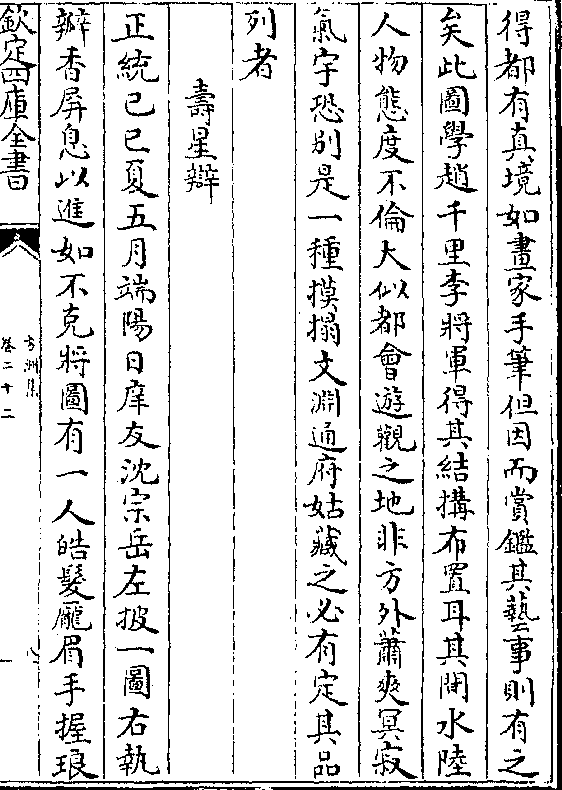 得都有真境如畫家手筆但因而賞鑑其藝事則有之
矣此圖學趙千里李將軍得其結搆布置耳其間水陸
人物態度不倫大似都會遊觀之地非方外蕭爽冥寂
氣宇恐别是一種摸搨文淵通府姑藏之必有定其品
列者
壽星辯
正統己巳夏五月端陽日庠友沈宗岳左披一圖右執
辦香屏息以進如不克將圖有一人皓髮龎眉手握琅
欽定四庫全書
方洲集
卷二十二
八